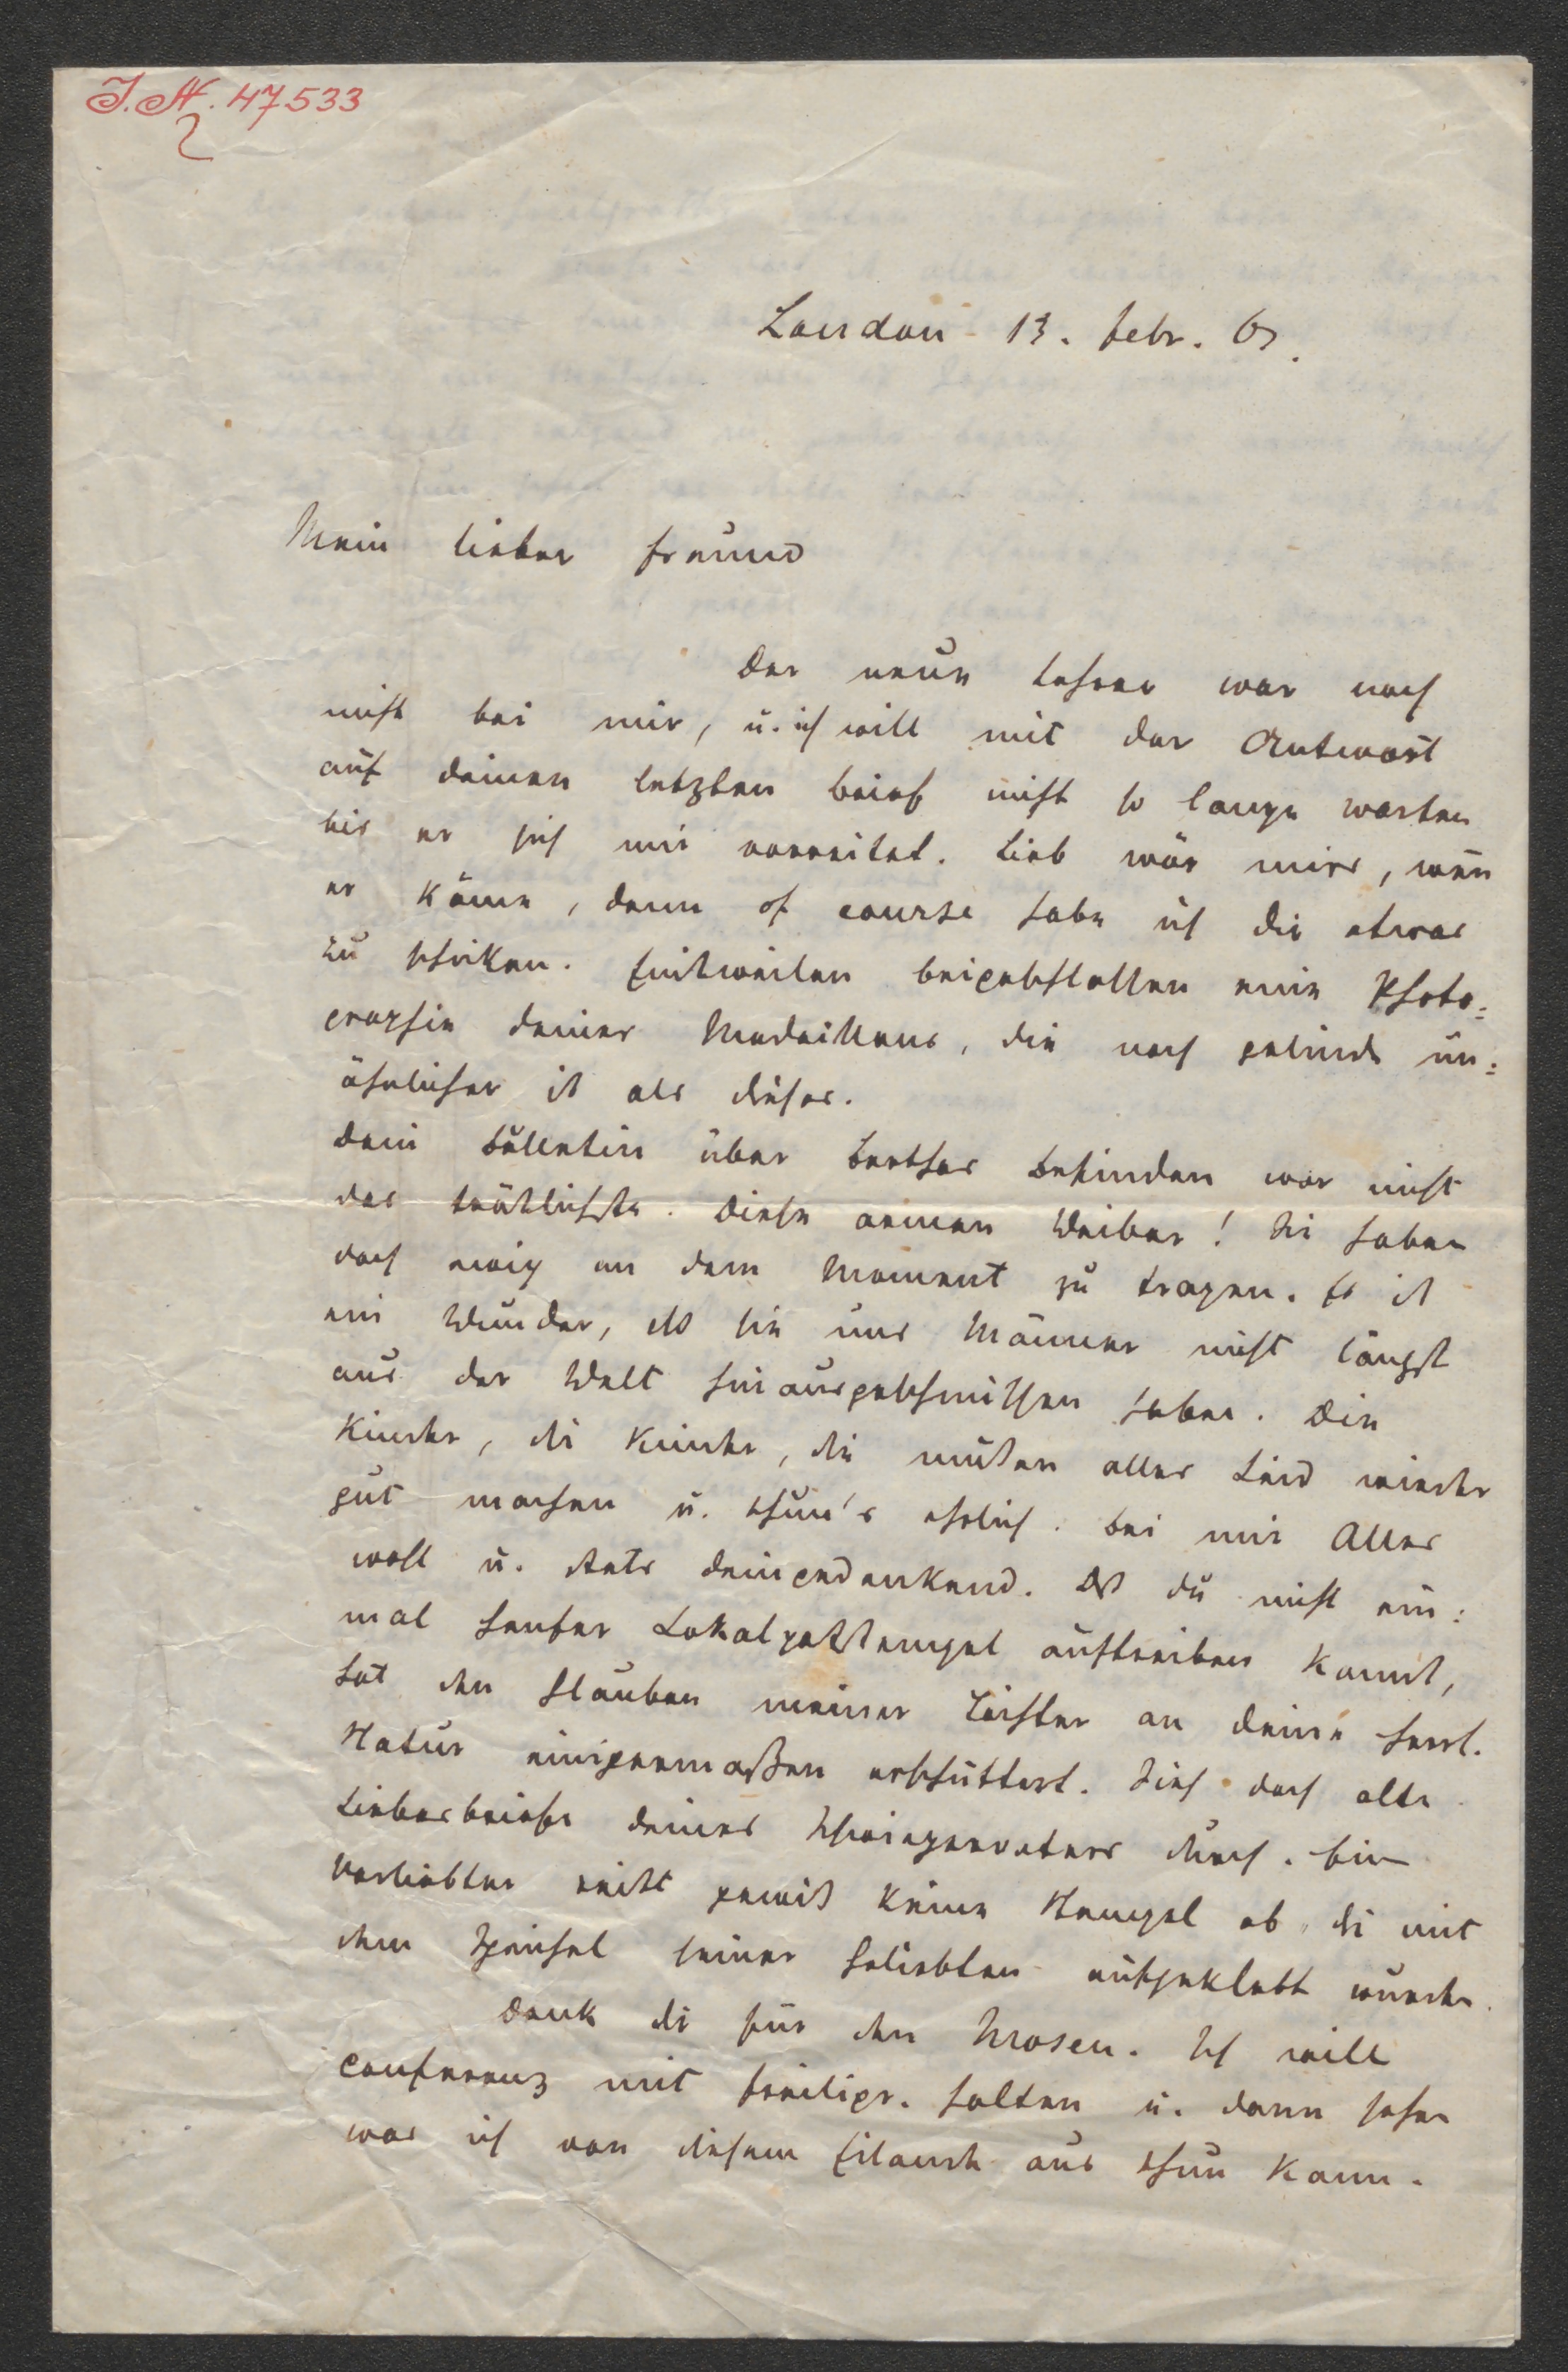 J. N. 47533
London 13. Febr. 67.
Mein lieber Freund
Der neue Lehrer war noch
nicht bei mir, u. ich will mit der Antwort
auf deinen letzten Brief nicht so lange warten
bis er sich mir vorreitet. Lieb wär mirs, wen̄
er käme, denn of course habe ich dir etwas
zu schicken. Einstweilen beigeschlossen eine Photo=
graphie deines Medaillons, die noch gelinde un=
ähnlicher ist als dieses.
Dein Bulletin über Berthas Befinden war nicht
das tröstlichste. Diese armen Weiber! Sie haben
doch ewig an dem Moment zu tragen. Es ist
ein Wunder, daß sie uns Männer nicht längst
aus der Welt hinausgeschmissen haben. Die
Kinder, die Kinder, die müßen alles Leid wieder
gut machen u. thun's ehrlich. Bei mir Alles
wohl u. stets deingedenkend. Daß du nicht ein=
mal Lokalpoststempel auftreiben kannst,
hat den Glauben meiner Töchter an deine
Natur einigermaßen erschüttert. Sieh doch alte
Liebesbriefe deines Schwiegervaters durch. Ein
Verliebter reißt gewiß keine Stempel ab die mit
dem Speichel seiner Geliebten aufgeklebt wurde.
Dank dir für den Mosen. Ich will
Conferenz mit Freiligr. halten u. dann sehen
was ich von diesem Eilande aus thun kann.